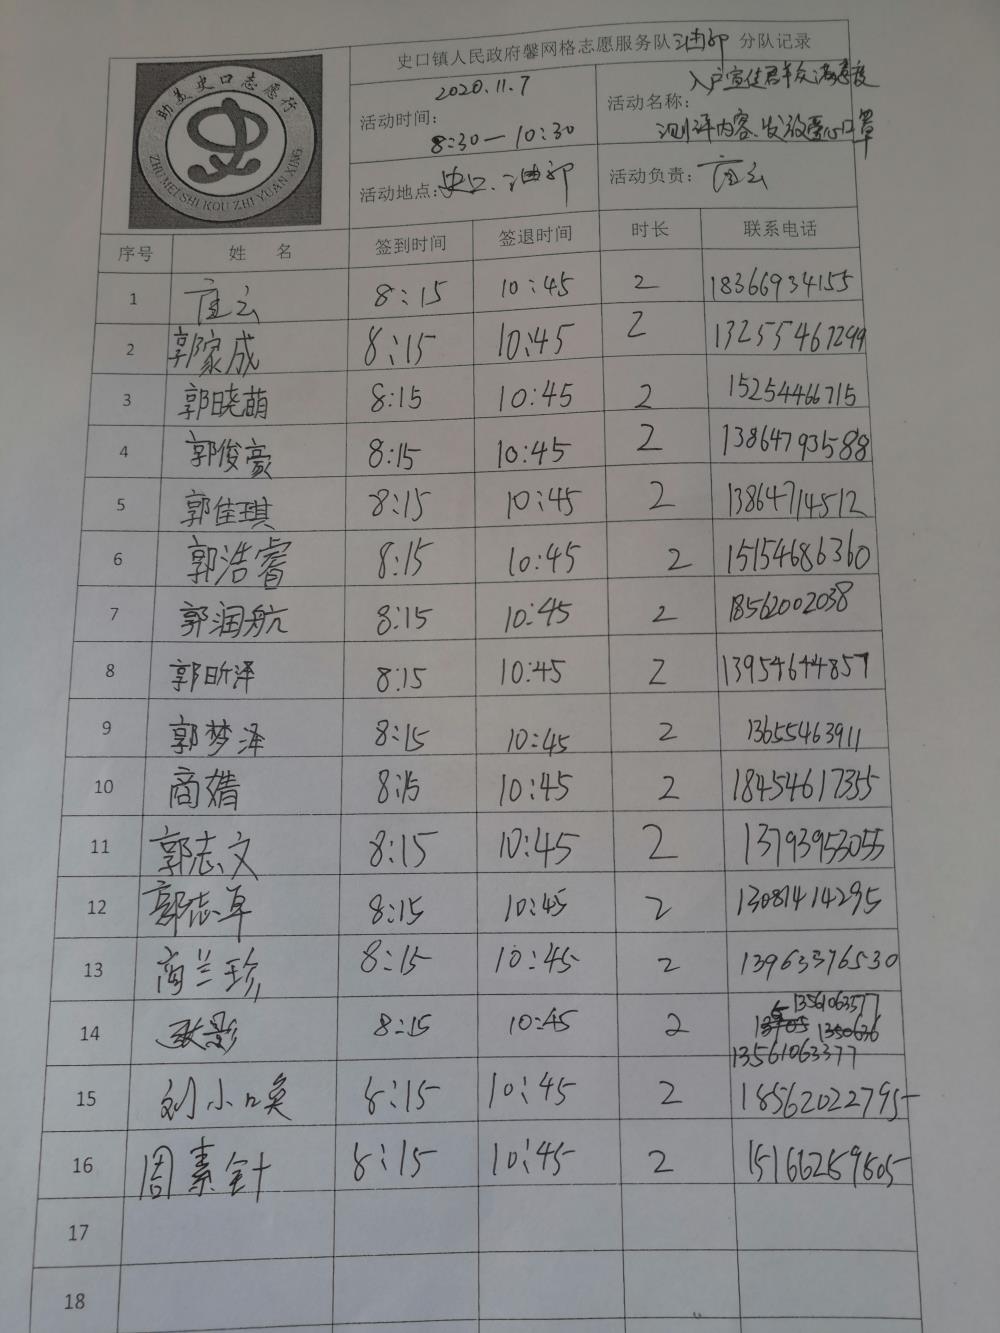 史口镇人民政府馨网格志愿服务队油郭 分队记录
助美史口志愿行
ZHU MEI SHI KOU ZHI YUAN XING
2020.11.7
活动时间：
8:30—10:30
入户宣传群众满意度
活动名称：
测评内容、发放爱心口罩
活动地点：史口、油郭
活动负责：
序号 姓 名 签到时间 签退时间 时长 联系电话
1 8:15 10:45 2 18366934155
2 郭家成 8:15 10:45 2 13255467299
3 郭晓萌 8:15 10:45 2 15254466715
4 郭俊豪 8:15 10:45 2 13864793588
5 郭佳琪 8:15 10:45 2 13864714512
6 郭浩睿 8:15 10:45 2 15154686360
7 郭润航 8:15 10:45 2 18562002038
8 郭昕泽 8:15 10:45 2 13954644857
9 郭梦泽 8:15 10:45 2 13655463911
10 商婧 8:15 10:45 2 18454617355
11 郭志文 8:15 10:45 2 13793953055
12 郭志卓 8:15 10:45 2 13081414295
13 商兰珍 8:15 10:45 2 13963376530
14 8:15 10:45 2 13561063377
15 刘小唤 8:15 10:45 2 18562022795
16 周素针 8:15 10:45 2 15166289605
17
18